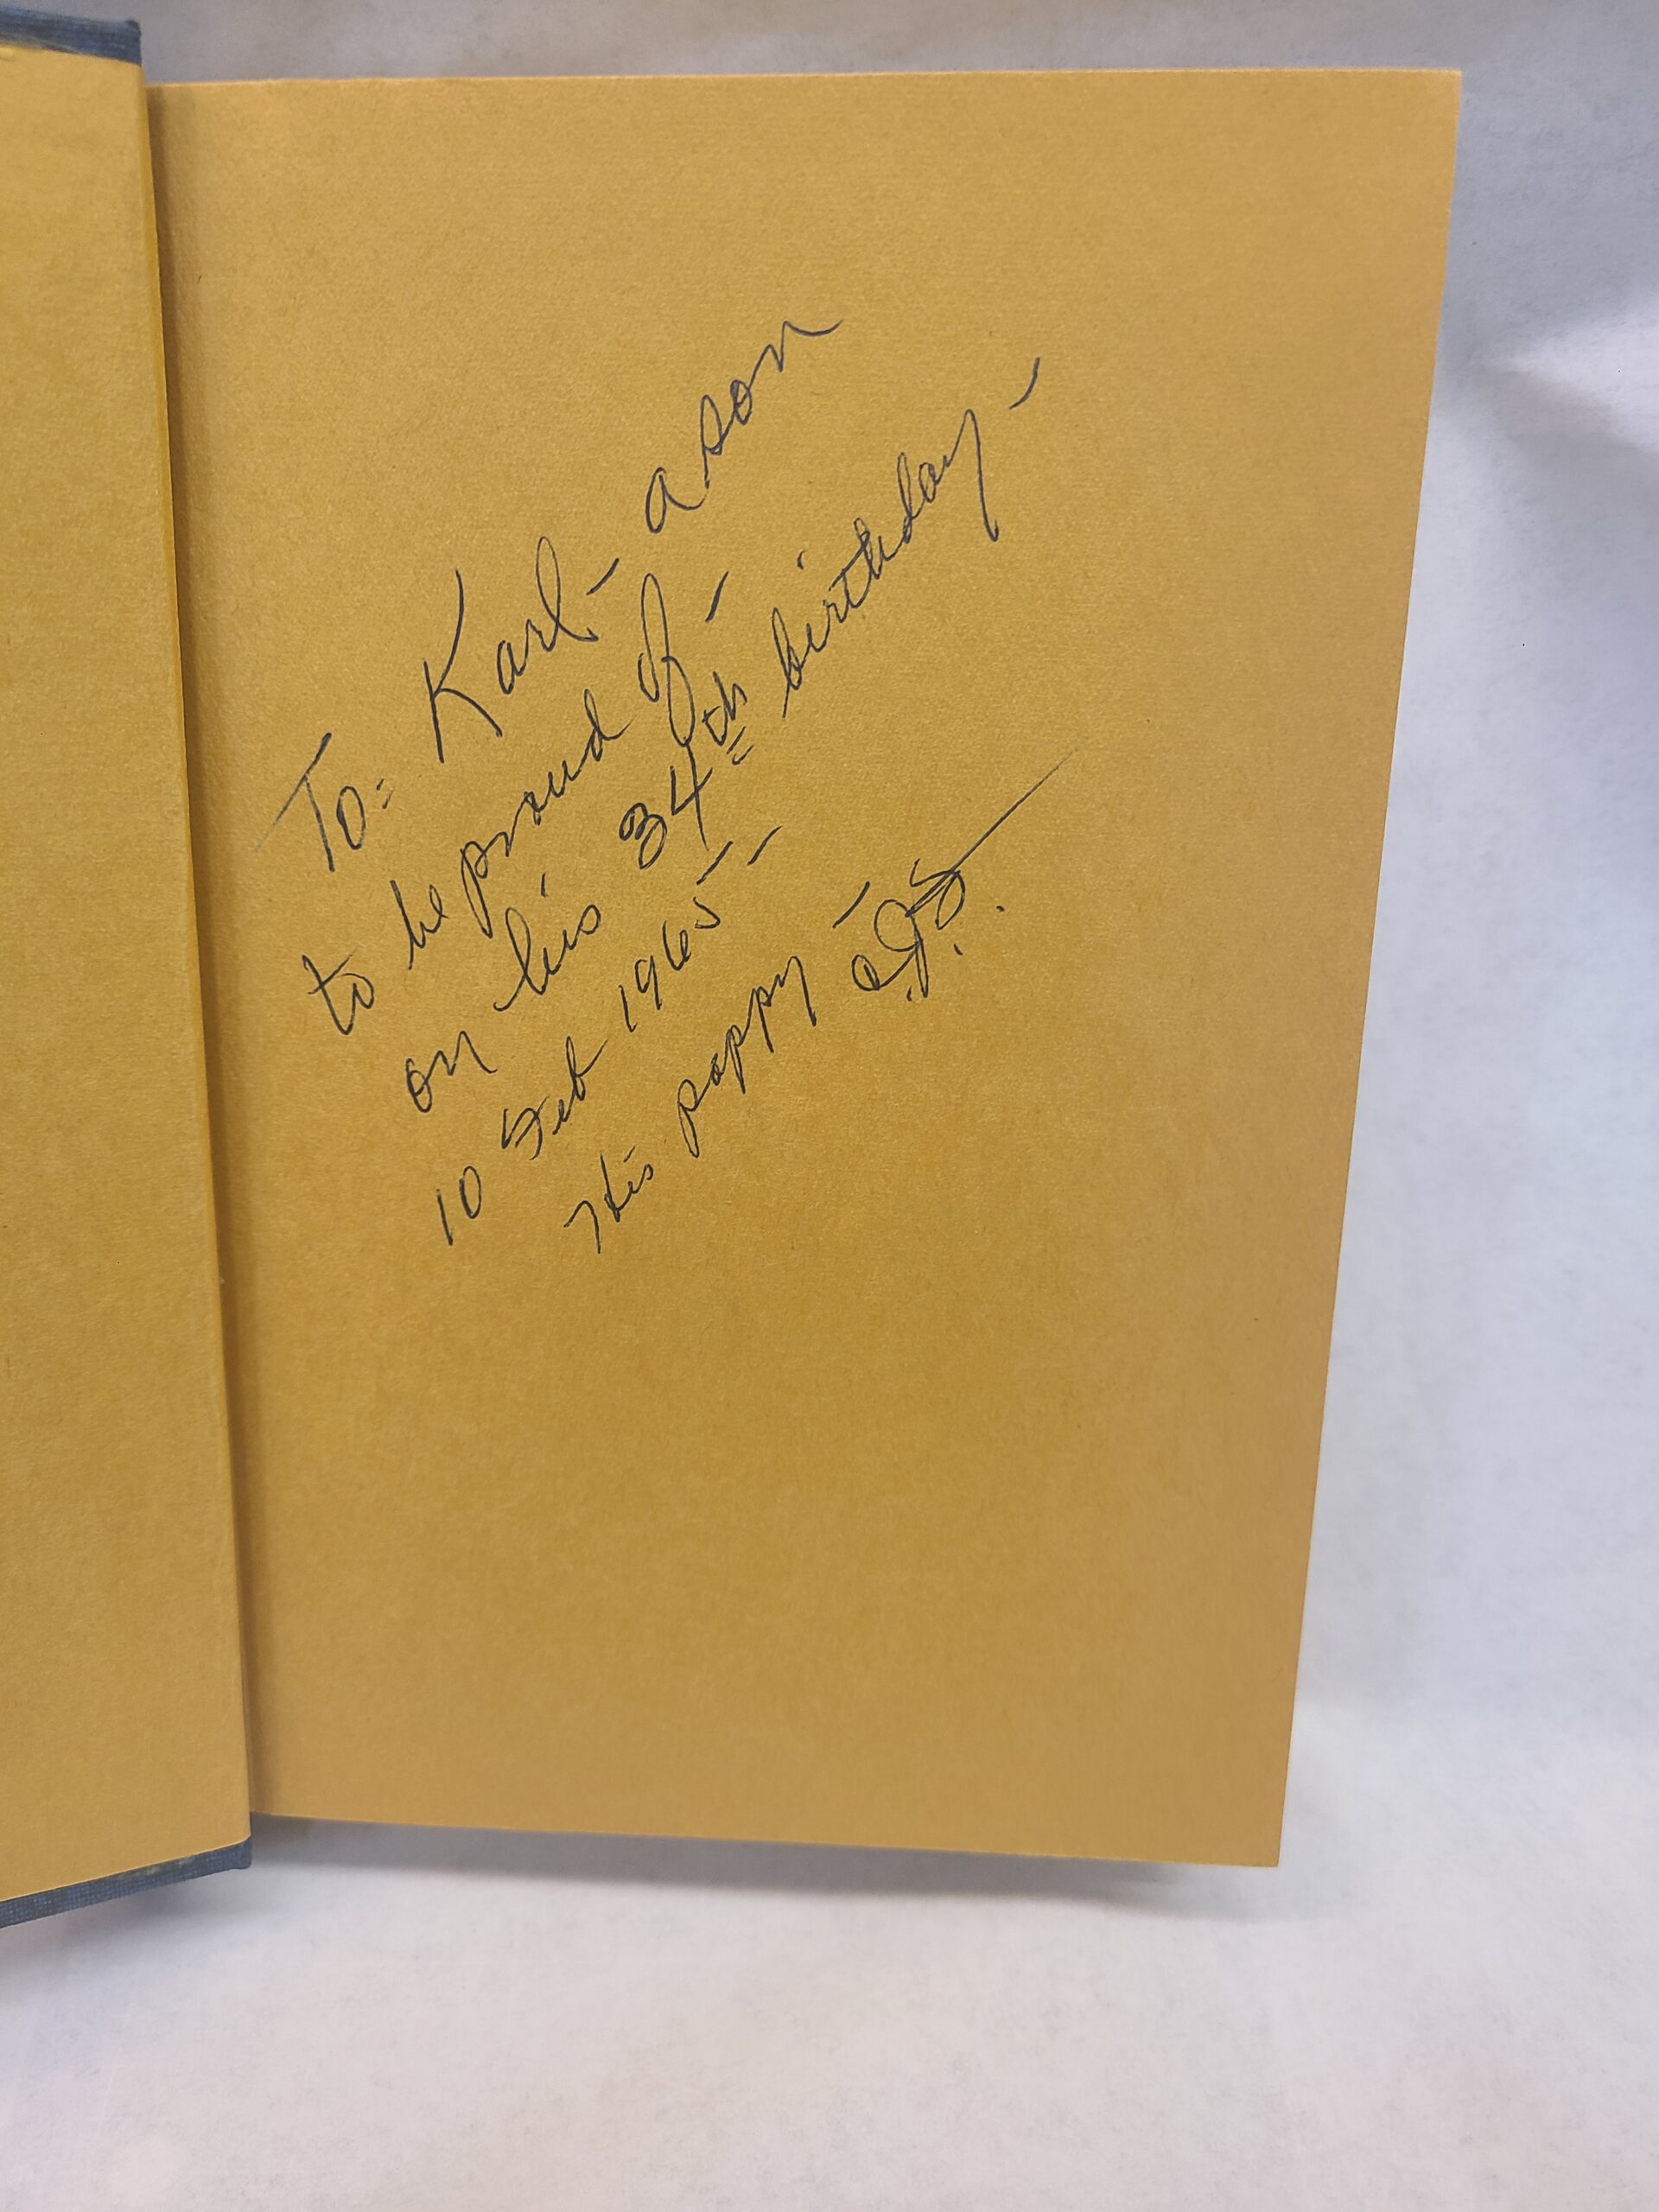 To: Karl – a son
to be proud of –
on his 34th birthday –
10 Feb 1965 –
His pappy –